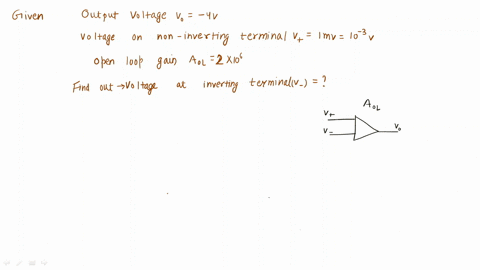 Given Output Voltage v₀ = -4v
Voltage on non-inverting terminal v₊ = 1mv = 10⁻³ v
open loop gain A_OL = 2 × 10⁶
Find out → Voltage at inverting terminal(v₋) = ?
A_OL
v₊
v₋
v₀